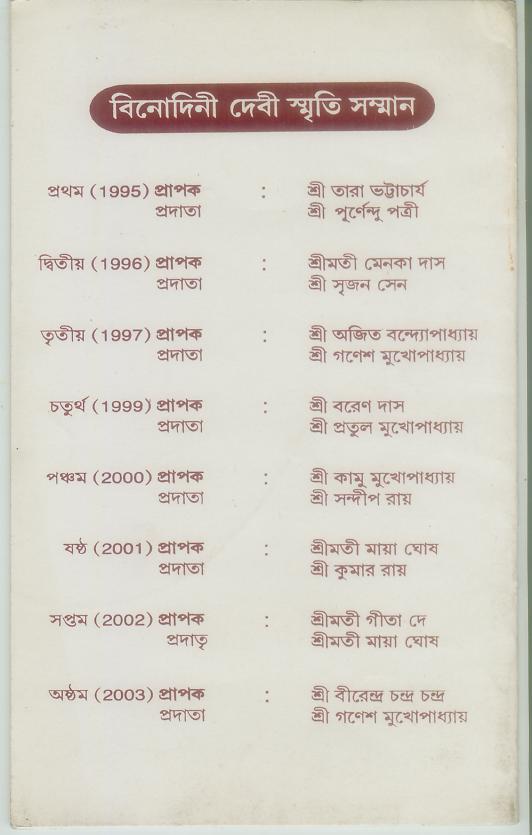 বিনোদিনী দেবী স্মৃতি সম্মান
প্রথম (1995) প্রাপক : শ্রী তারা ভট্টাচার্য
প্রদাতা শ্রী পূর্ণেন্দু পত্রী
দ্বিতীয় (1996) প্রাপক : শ্রীমতী মেনকা দাস
প্রদাতা শ্রী সৃজন সেন
তৃতীয় (1997) প্রাপক : শ্রী অজিত বন্দ্যোপাধ্যায়
প্রদাতা শ্রী গণেশ মুখোপাধ্যায়
চতুর্থ (1999) প্রাপক : শ্রী বরেণ দাস
প্রদাতা শ্রী প্রতুল মুখোপাধ্যায়
পঞ্চম (2000) প্রাপক : শ্রী কামু মুখোপাধ্যায়
প্রদাতা শ্রী সন্দীপ রায়
ষষ্ঠ (2001) প্রাপক : শ্রীমতী মায়া ঘোষ
প্রদাতা শ্রী কুমার রায়
সপ্তম (2002) প্রাপক : শ্রীমতী গীতা দে
প্রদাতৃ শ্রীমতী মায়া ঘোষ
অষ্ঠম (2003) প্রাপক : শ্রী বীরেন্দ্র চন্দ্র চন্দ্র
প্রদাতা শ্রী গণেশ মুখোপাধ্যায়